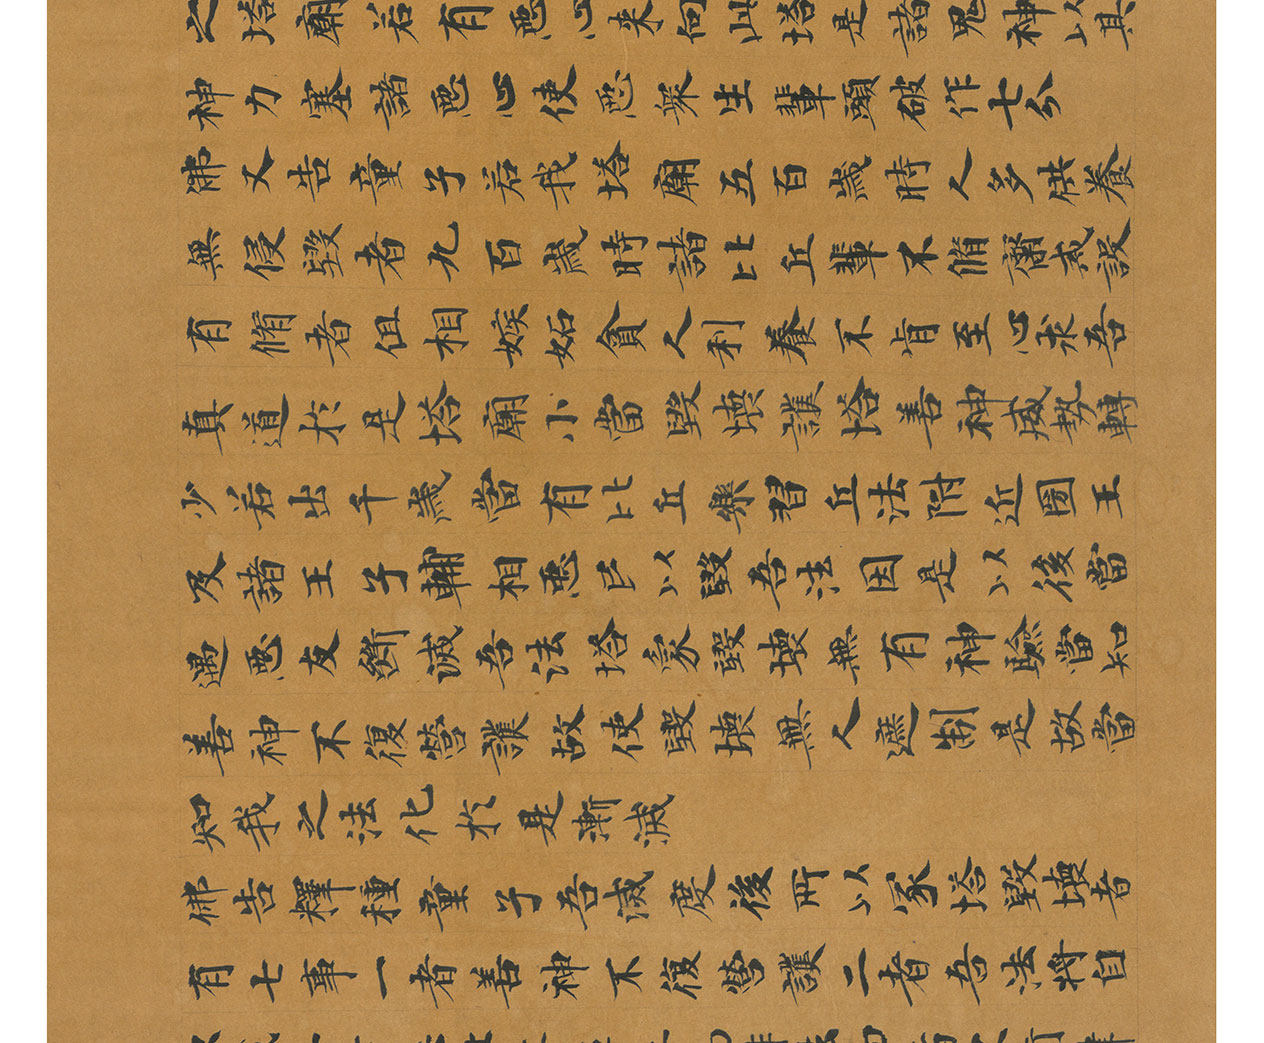 之塔廟若有惡心来向此塔是諸鬼神以其
神力塞諸惡心使惡衆生輩頭破作七分
佛又告童子若我塔廟五百歲時人多供養
無侵毀者九百歲時諸比丘輩不脩齋戒設
有脩者但相嫉妬貪人利養不肯至心求吾
真道於是塔廟小當毀壞護塔善神威勢轉
少若出千歲當有比丘樂習丘法附近國王
及諸王子輔相惡臣以毀吾法因是以後當
遇惡友斷滅吾法塔冢毀壞無有神驗當知
善神不復營護故使毀壞無人遮制是故當
知我之法化於是漸滅
佛告釋種童子吾滅度後所以冢塔毀壞者
有七事一者善神不復營護二者吾法將自